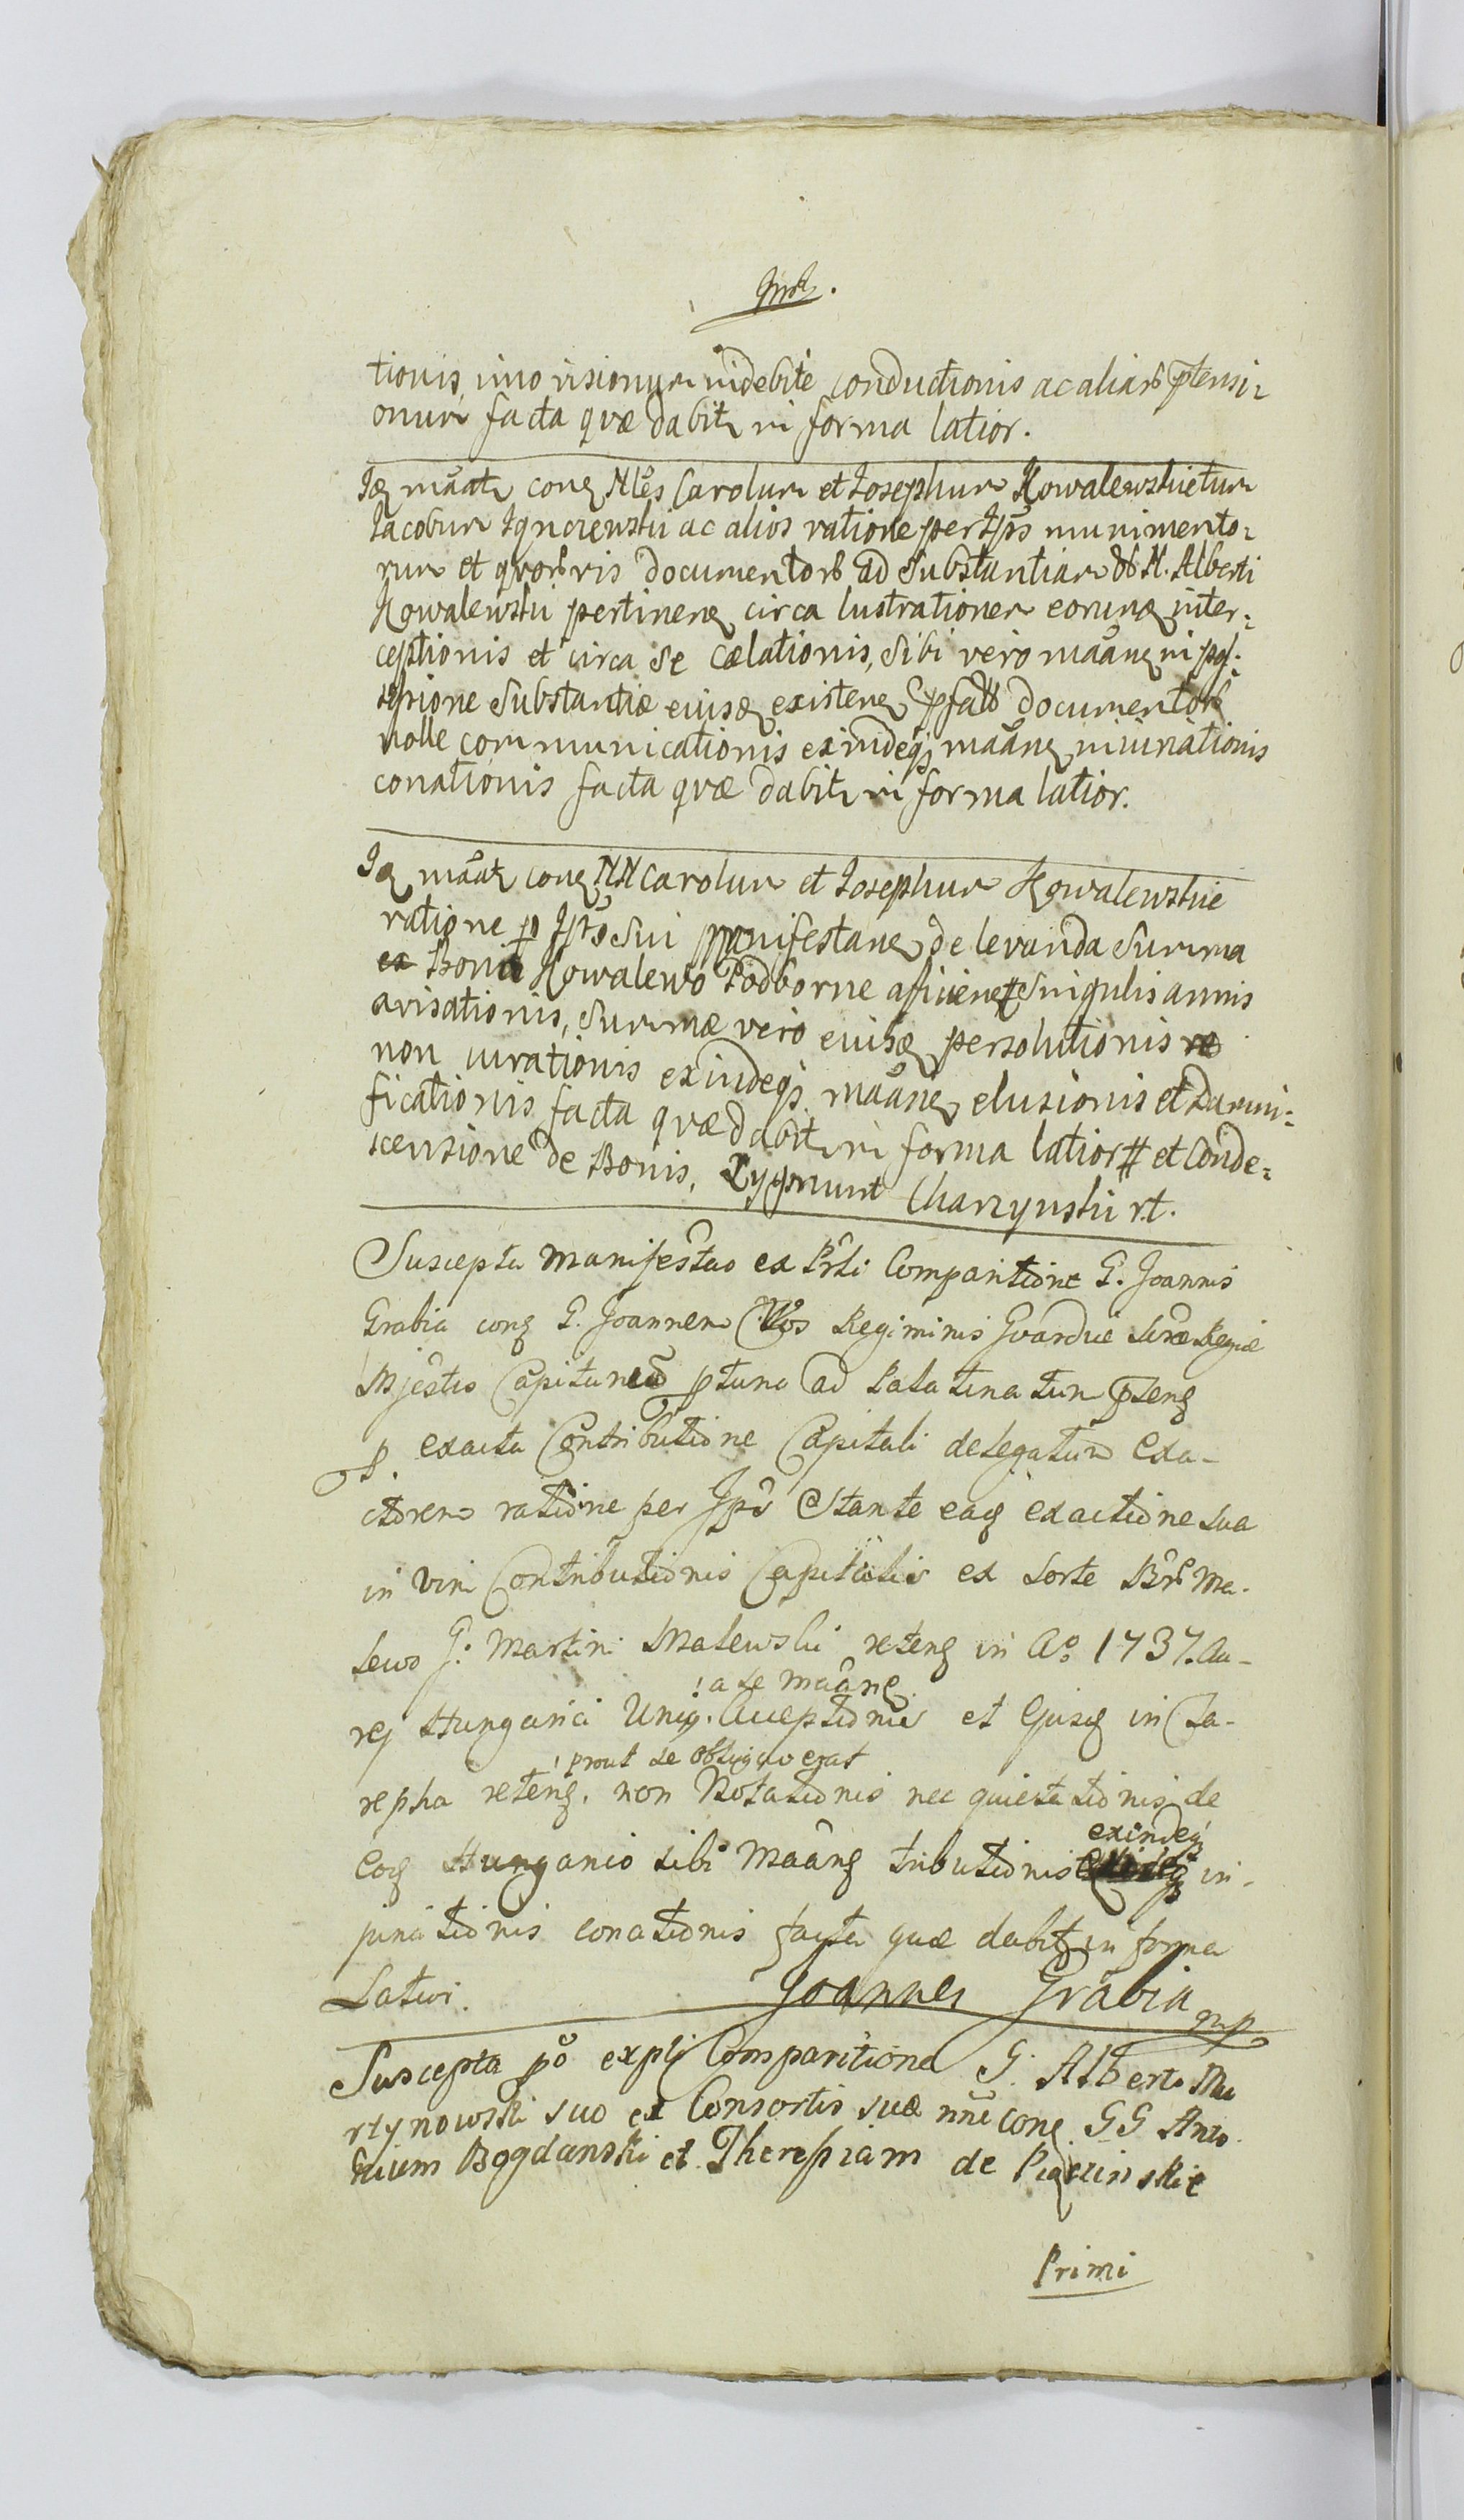 tionis, imo visionum indebite conductionis ac aliarb ptensi-
onum facta quæ dabitr in forma latior.
Idq maatr conq Nles Carolum et Josephum Kowalewskie tum
Jacobum ac alios ratione per Ipos munimento-
rum et quorbvis documentorb ad Substantiam N. Alberti
Kowalewski pertinenq circa lustrationem eorunq inter-
ceptionis et circa se cælationis, Sibi vero maanq in pos-
sessione Substantiæ eiusq existenq documentorb
nolle communicationis exindeqs maanq iniuriationis
conationis facta quæ dabitr in forma latior.
Idq maatr conq NN Carolum et Josephum Kowalewskie
ratione p Ipos Sui manifestanq de levanda Summa
ex Bonis Kowalewo Podborne Singulis annis
avisationis, Summæ vero eiusq persolutionis
non curationis exindeqs maanq elusionis et Damni-
ficationis facta quæ dabitr in forma latior # et Conde-
scensione de Bonis, Zygmunt Charzynski rt.
Suscepta Manifestao ex Prli Comparitione G. Joannis
Grabia conq G. Joannem Regiminis Gvardiæ Sræ Regiæ
Mjestis Capitaneum ptunc ad Palatinatum ptenq
p. exacta Contributione Capitali delegatum Exa-
ctorem ratione per Ipm Stante eaq exactione sua
in vim Contributionis Capitalis ex Sorte Bnrb Ma-
lewo G. Martini Malewski retenq in Ao 1737. Au-
! a se maanq
rej Hungarici Uniq. Acceptionis et Ejusq in Ta-
! prout se obligaverat
repha retenq, non Notationis nec quietationis de
exindeqs
Eoq Hungarico sibi Maanq tributionis in-
juriationis conationis facta quæ dabitr in forma
Latiori. Joannes Grabia mp
Suscepta po exply Comparitione G. Alberti Ma
rtynowski suo et Consortis suæ nnie conq GG Anto
nium Bogdanski et Theresiam de
Primi